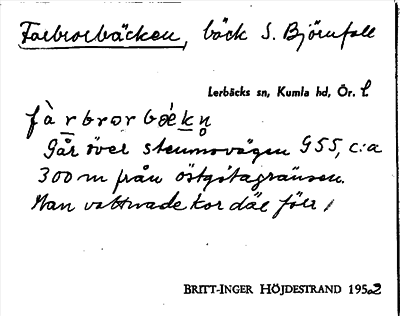 Farbrorbäcken, bäck S. Björnfall
Lerbäcks sn, Kumla hd, Ör. l.
fàrbrorbǽkn̥
Går över stenmovägen G55, c:a
300 m från östgötagränsen.
Man vattnade kor där förr /
BRITT-INGER HÖJDESTRAND 1952